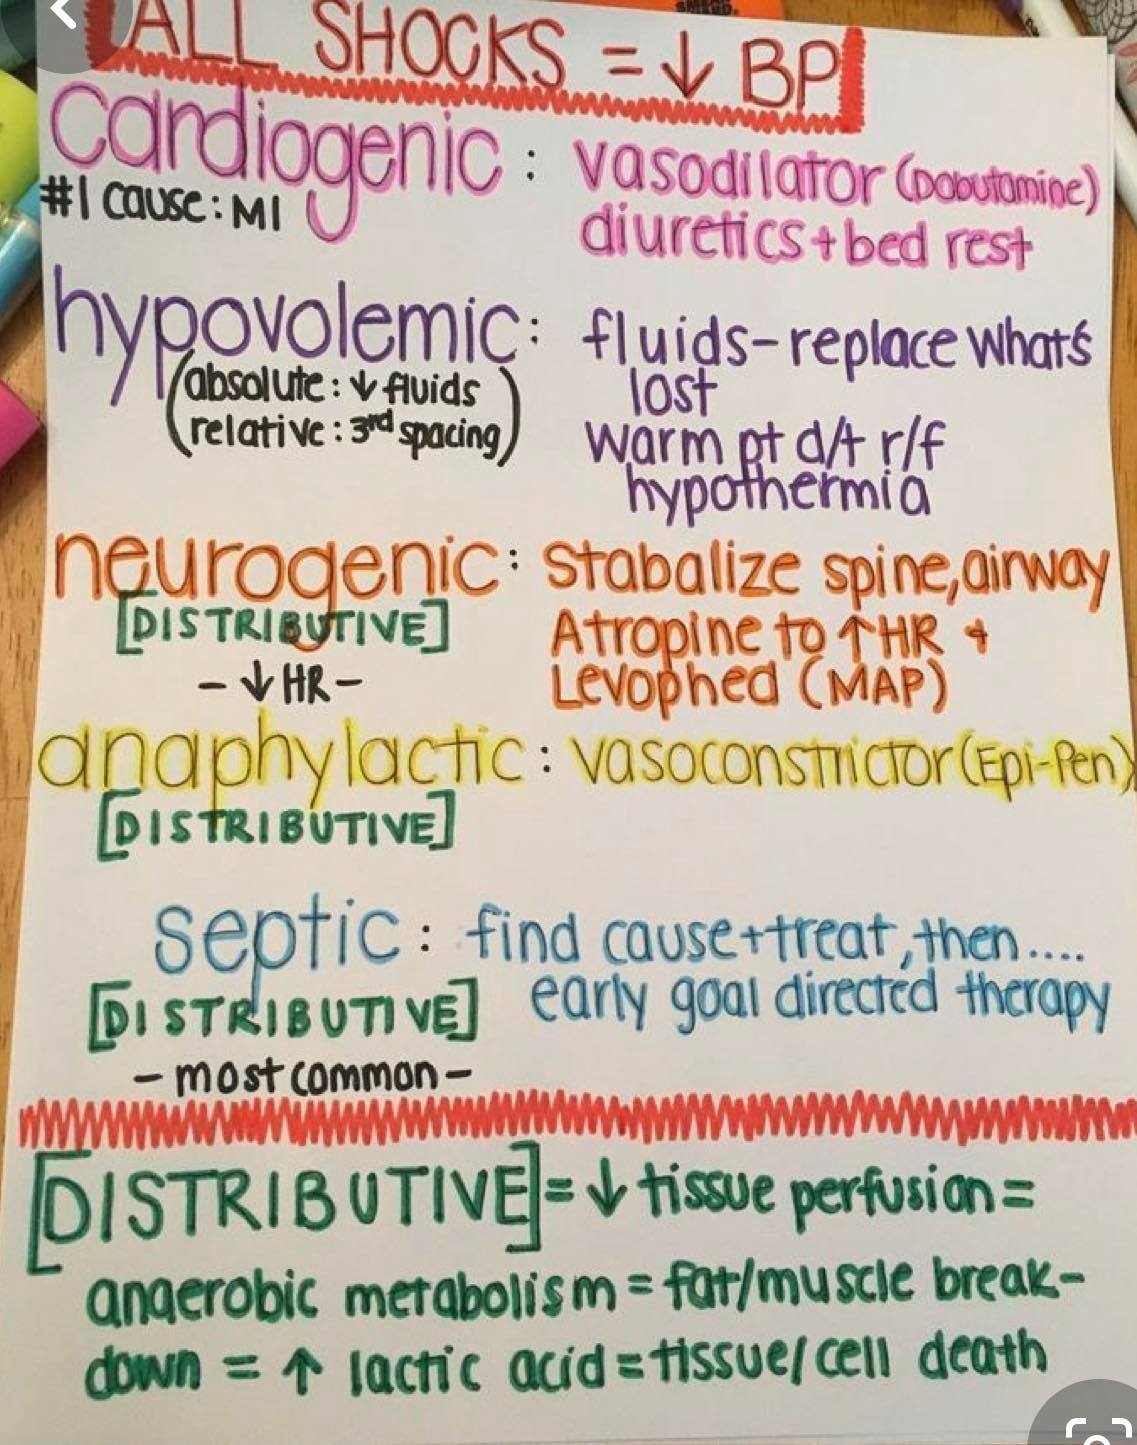 ALL SHOCKS = ↓ BP
cardiogenic : vasodilator (Dobutamine)
#1 cause: MI
diuretics + bed rest
hypovolemic : fluids - replace what's
lost
(absolute: ↓ fluids
relative: 3rd spacing)
warm pt d/t r/f
hypothermia
neurogenic : Stabalize spine, airway
[DISTRIBUTIVE]
- ↓ HR -
Atropine to ↑ HR +
Levophed (MAP)
anaphylactic : vasoconstrictor (Epi-Pen)
[DISTRIBUTIVE]
septic : find cause + treat, then....
[DISTRIBUTIVE]
early goal directed therapy
- most common -
[DISTRIBUTIVE] = ↓ tissue perfusion =
anaerobic metabolism = fat/muscle break-
down = ↑ lactic acid = tissue/cell death